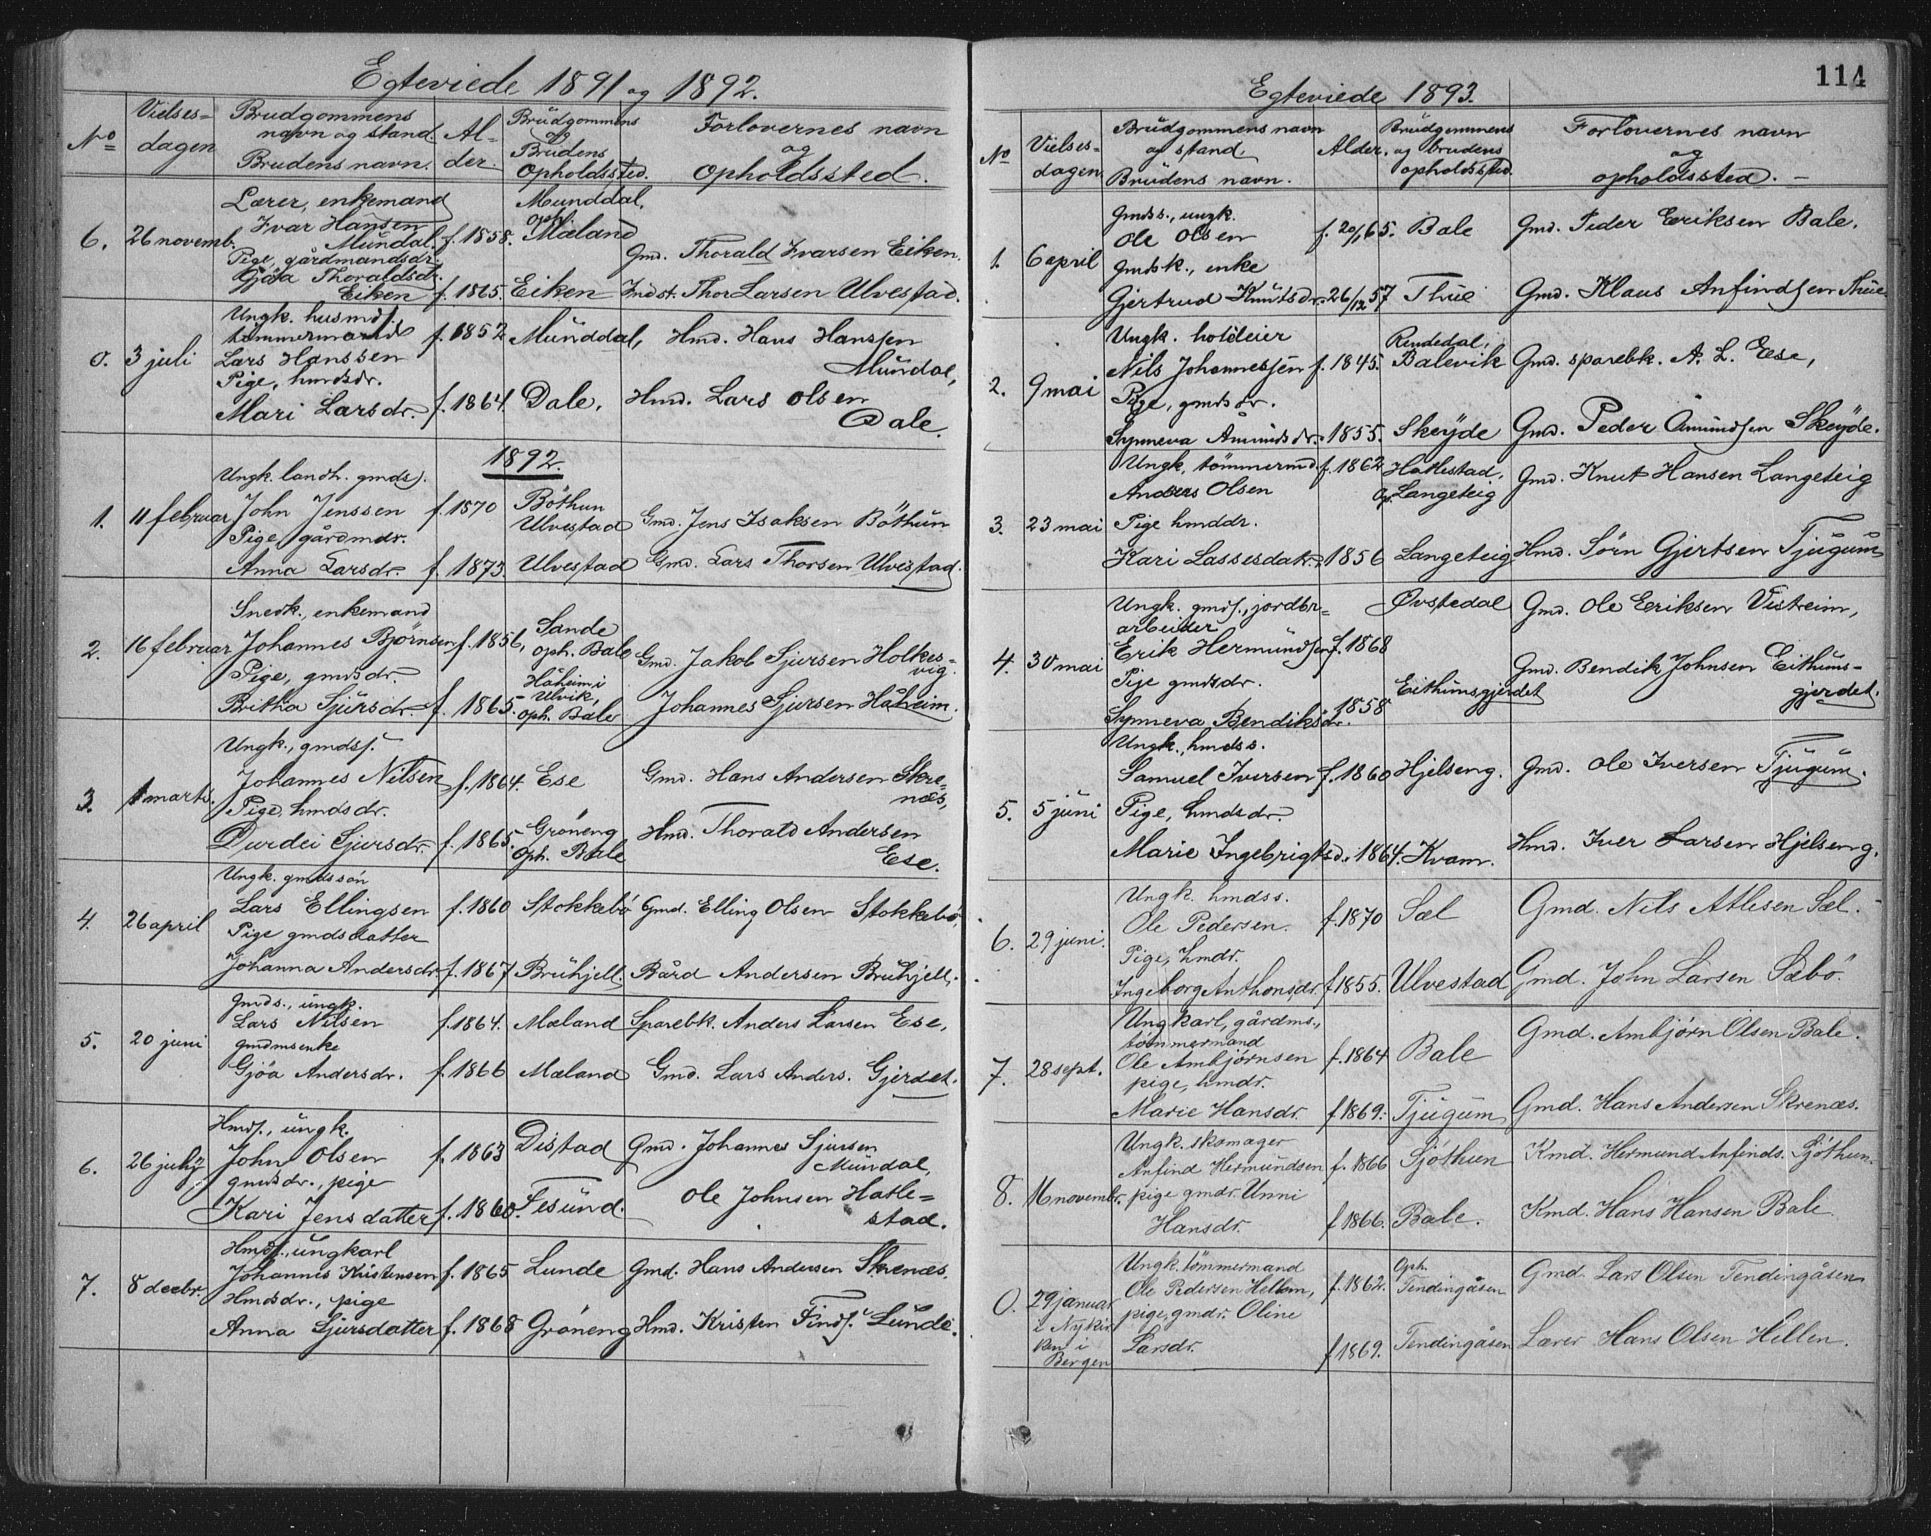 Egteviede 1891 og 1892.
No
Vielses-
dagen
Brudgommens
navn og stand
Brudens navn.
Al-
der.
Brudgommens
og
Brudens
Opholdssted.
Forlovernes navn
og
opholdssted.
6. 26 novemb.
Lærer, enkemand
Ivar Hansen
Mundal
f. 1858.
Munddal,
oph.
Mæland
Gmd. Thorald Ivarsen Eiken.
Pige, gårdmandsdr.
Gjöa Thoraldsdr.
Eiken f. 1865. Eiken
Indst. Thor Larsen Ulvestad.
0. 3 juli
Ungk. husmds.
tømmermand
Lars Hanssen
f. 1852 Munddal, Hmd. Hans Hanssen
Mundal,
Pige, hmdsdr.
Mari Larsdr. f. 1864. Dale, Hmd. Lars Olsen
Dale.
1892.
1. 11 februar
Ungk. landh. gmds.
John Jenssen f. 1870
Böthun
Ulvestad
Gmd. Jens Isaksen Böthun
Pige, gårdmdr.
Anna Larsdr. f. 1873. Ulvestad Gmd. Lars Thorsen Ulvestad.
2. 16 februar
Snedk., enkemand
Johannes Bjørnsen f. 1856,
Sande
oph. Bale
Gmd. Jakob Sjursen Holkes-
vig.
Pige, gmdsdr.
Britha Sjursdr. f. 1865.
Håheim i
Ulvik,
oph. Bale
Johannes Sjursen Håheim.
3. 1 marts.
Ungk., gmdss.
Johannes Nilsen f. 1864. Ese Gmd. Hans Andersen Skre-
næs,
Pige, hmdsdr.
Durdei Sjursdr. f. 1865.
Gröneng
oph. Bale
Hmd. Thorald Andersen
Ese.
4. 26 april
Ungk. gmdssön
Lars Ellingsen f. 1860 Stokkebö Gmd. Elling Olsen Stokkebö,
Pige gmdsdatter
Johanna Andersdr. f. 1867 Bruhjell. Bård Andersen Bruhjell.
5. 20 juni
gmds., ungk.
Lars Nilsen f. 1864. Mæland Sparebk. Anders Larsen Ese,
gmdmsenke
Gjöa Andersdr. f. 1866 Mæland Gmd. Lars Anders. Gjerdet.
6. 26 july
Hmds., ungk.
John Olsen f. 1863 Distad Gmd. Johannes Sjursen
Mundal,
gmdsdr., pige
Kari Jensdatter f. 1860. Fesund. Ole Johnsen Hatle-
stad.
7. 8 decbr.
Hmds., ungkarl
Johannes Kristensen f. 1865 Lunde Gmd. Hans Andersen Skrenæs.
Hmdsdr., pige
Anna Sjursdatter f. 1868 Gröneng Hmd. Kristen Finds. Lunde.
114
Egteviede 1893.
No
Vielses-
dagen
Brudgommens navn
og stand.
Brudens navn.
Alder.
Brudgommens
og brudens
opholdssted.
Forlovernes navn
og
opholdssted.
1. 6 april
Gmds., ungk.
Ole Olsen f. 20/1 65. Bale Gmd. Peder Eriksen Bale.
Gmdsk., enke
Gjertrud Knutsdr. 26/12 57 Thue Gmd. Klaus Anfindsen Thue
2. 9 mai
Ungk. holdeier
Nils Johannessen f. 1845.
Rendedal,
Balevik
Gmd. sparebk. A. L. Ese,
Pige, gmdsdr.
Synneva Amundsdr. 1855. Skeyde Gmd. Peder Amundsen Skeyde.
3. 23 mai
Ungk. tömmermd. f. 1862
Anders Olsen
Hatlestad,
op. Langeteig
Gmd. Knut Hansen Langeteig
Pige hmddr.
Kari Lassesdatr. 1856 Langeteig Hmd. Sörn Gjertsen Tjugum
4. 30 mai
Ungk. gmds., jordbr-
arbeider
Erik Hermundsen f. 1868
Øvstedal Gmd. Ole Eriksen Vistreim,
Pije gmdsdr.
Synneva Bendiksdr. 1858
Eithunsgjerdet
Gmd. Bendik Johnsen Eithuns-
gjerdet.
5. 5 juni
Ungk., hmdss.
Samuel Iversen f. 1860 Hjelseng. Gmd. Ole Iversen Tjugum.
Pige, hmdsdr.
Marie Ingebrigtsd. 1864. Kvam. Hmd. Iver Larsen Hjelseng.
6. 29 juni.
Ungk. hmdss.
Ole Pedersen. f. 1870 Sæl Gmd. Nils Atlesen Sæl.
Pige, hmdr.
Ingeborg Anthonsdr. f. 1855. Ulvestad Gmd. John Larsen Sæbö.
7. 28 sept.
Ungkarl, gårdms.,
tømmermand
Ole Ambjörnsen f. 1864 Bale Gmd. Ambjörn Olsen Bale.
pige, hmdr.
Marie Hansdr. f. 1869. Tjugum Gmd. Hans Andersen Skrenæs.
8. 16 novembr.
Ungk. skomager
Anfind Hermundsen f. 1866 Sjöthun Kmd. Hermund Anfinds. Sjöthun.
pige gmdr. Unni
Hansdr. f. 1866. Bale. Kmd. Hans Hansen Bale.
0. 29 januar
i Nykir
ken i
Bergen
Ungk. tömmermand
Ole Pedersen Hellem, f. 1862.
Oph.
Tendingåsen
Gmd. Lars Olsen Tendingåsen
pige, gmdr. Oline
Larsdr. f. 1869. Tendingåsen Lærer Hans Olsen Hellen.